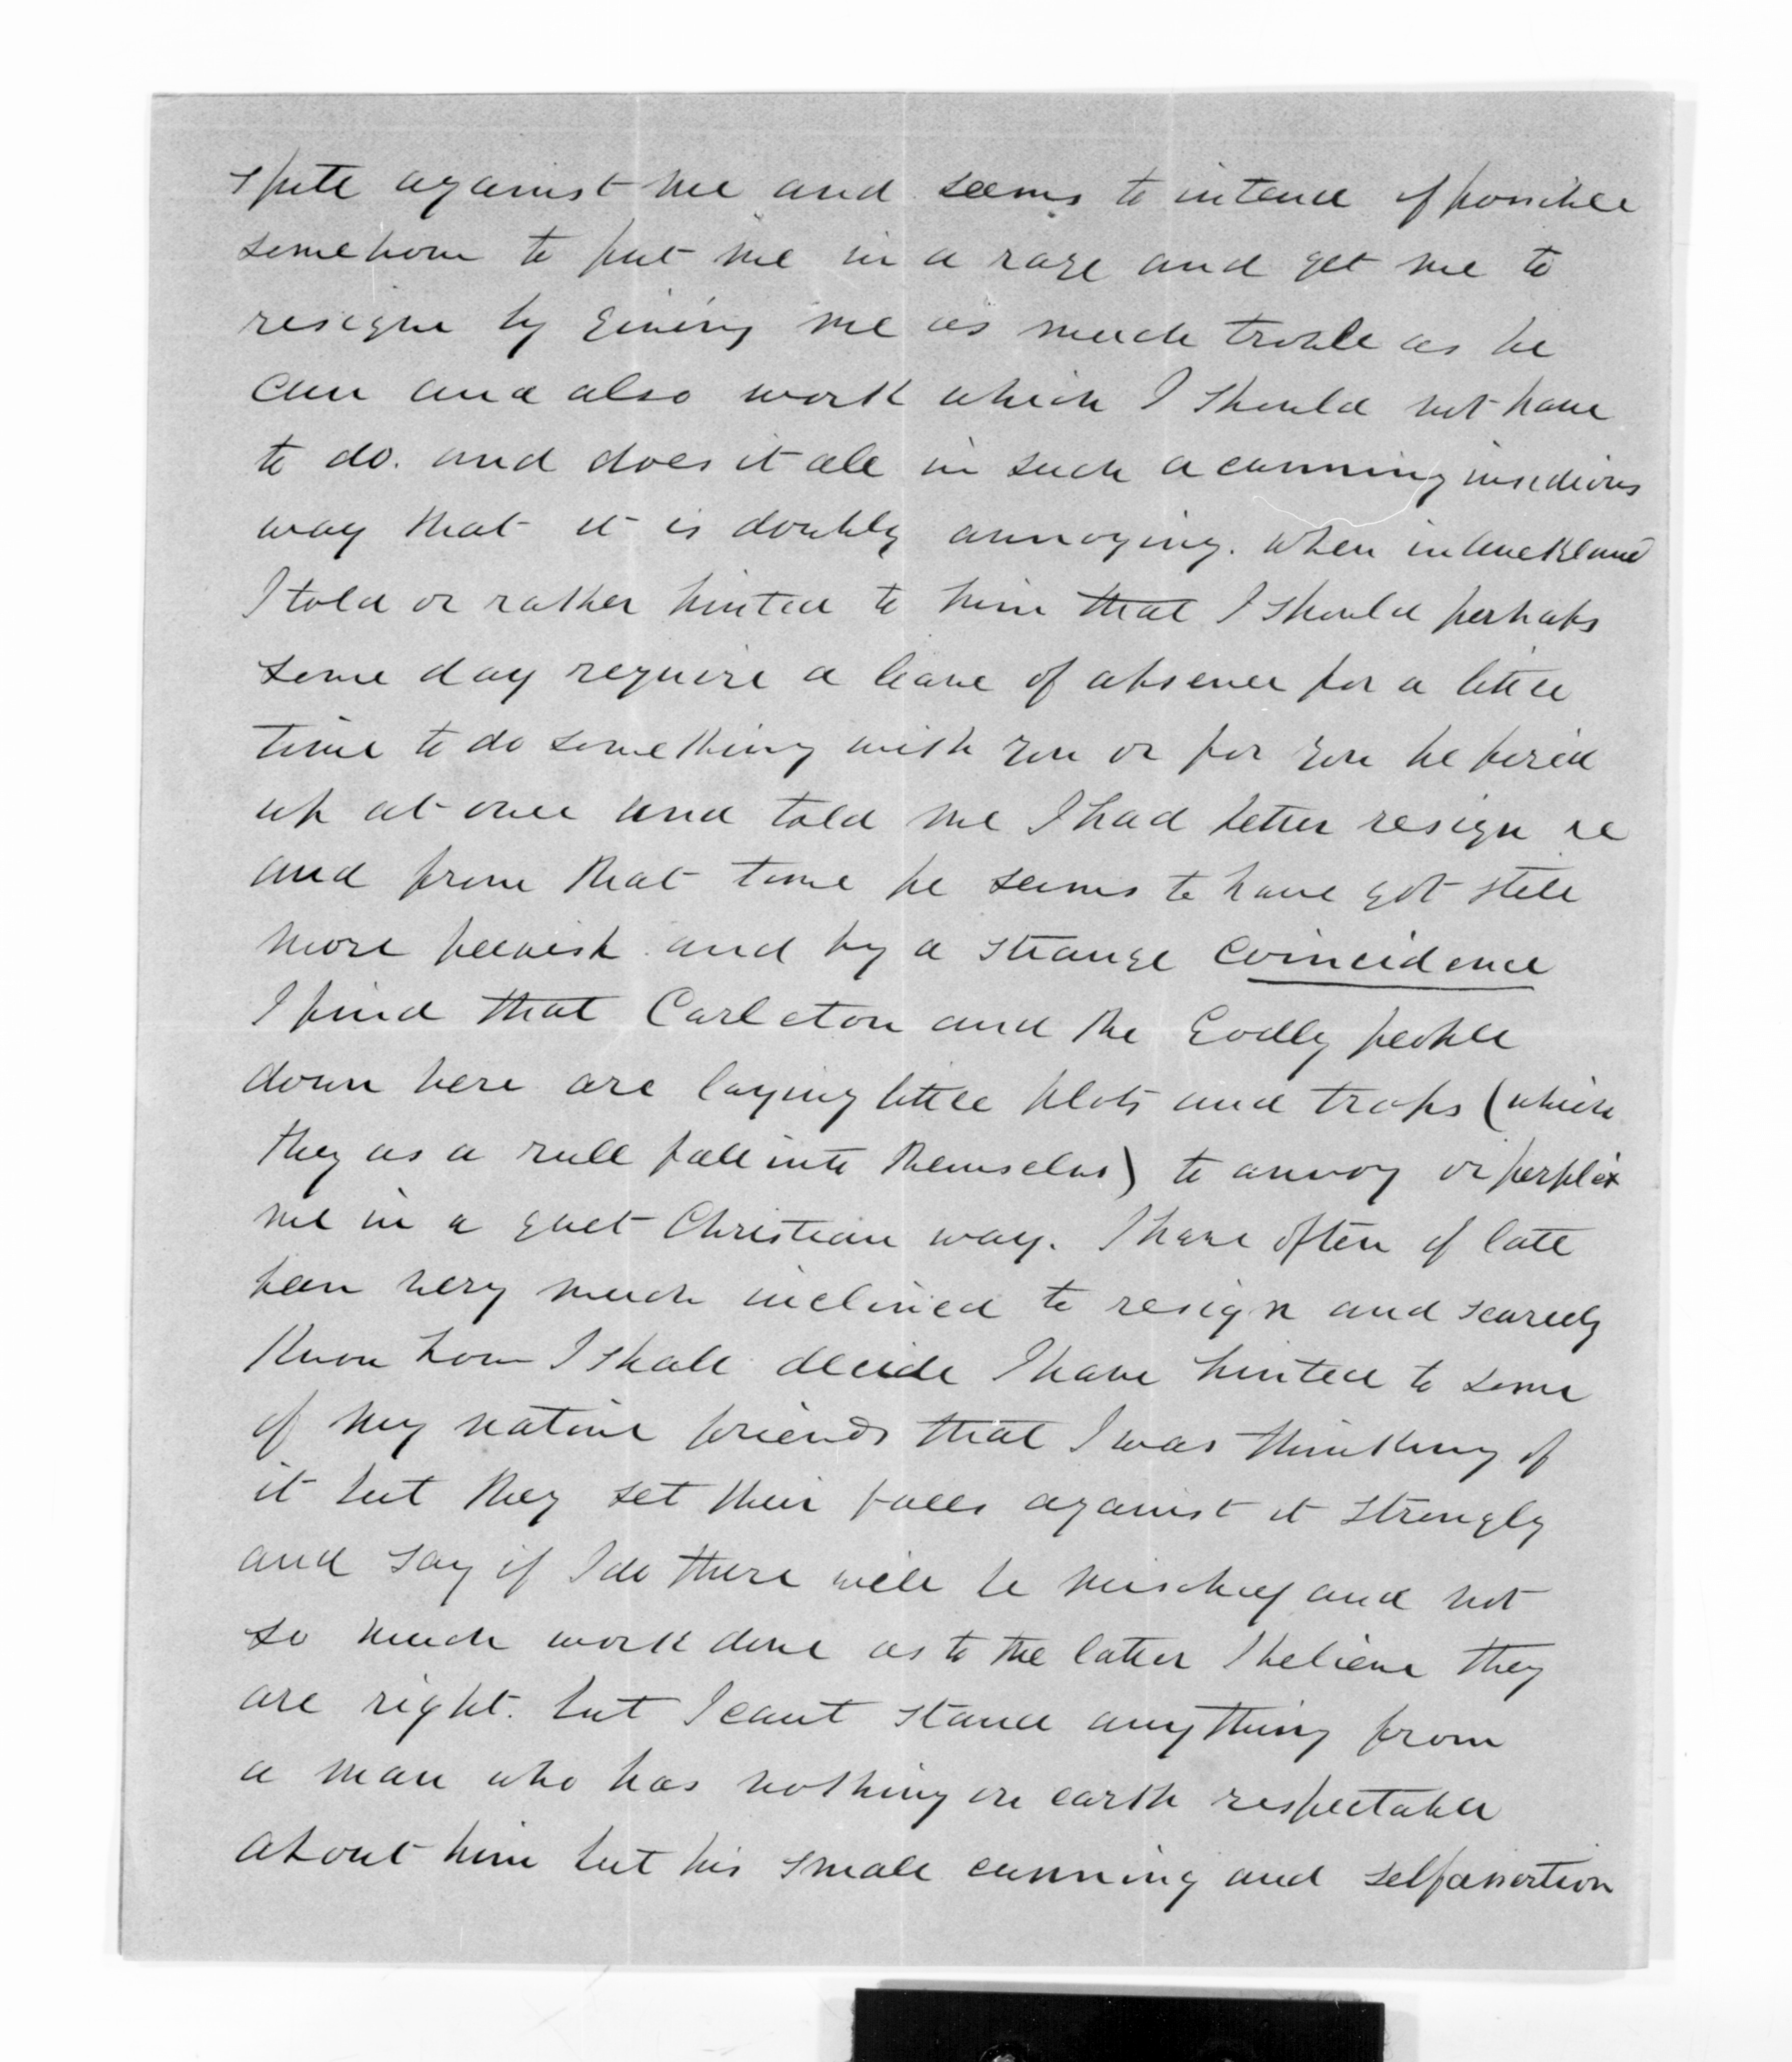 spite against me and seems to intend if possible
somehow to put me in a rage and get me to
resign by giving me as much trouble as he
can and also work which I should not have
to do. and does it all in such a cunning insidious
way that it is doubly annoying. when in Auckland
I told or rather hinted to him that I should perhaps
some day require a leave of absence for a little
time to do something with you or for you he fired
up at once and told me I had better resign &c
and from that time he seems to have got still
more peevish. and by a strange coincidence
I find that Carleton and the Godly people
down here are laying little plots and traps (which
they as a rule fall into themselves) to annoy or perplex
me in a quet Christian way. I have often of late
been very much inclined to resign and scarcely
know how I shall decide I have hinted to some
of my native friends that I was thinking of
it but they set their faces against it strongly
and say if I do there will be mischief and not
so much work done as to the latter I believe they
are right. but I cant stand anything from
a man who has nothing on earth respectable
about him but his small cunning and selfassertion